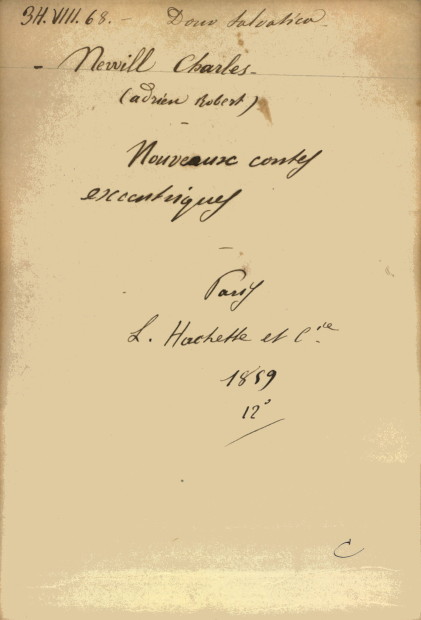 34.VIII.68. - Dono Salvatico -
- Newill Charles -
(adrien Robert)
-
Nouveaux contes
excentriques
-
Paris
L. Hachette et Cie.
1859
12°
C